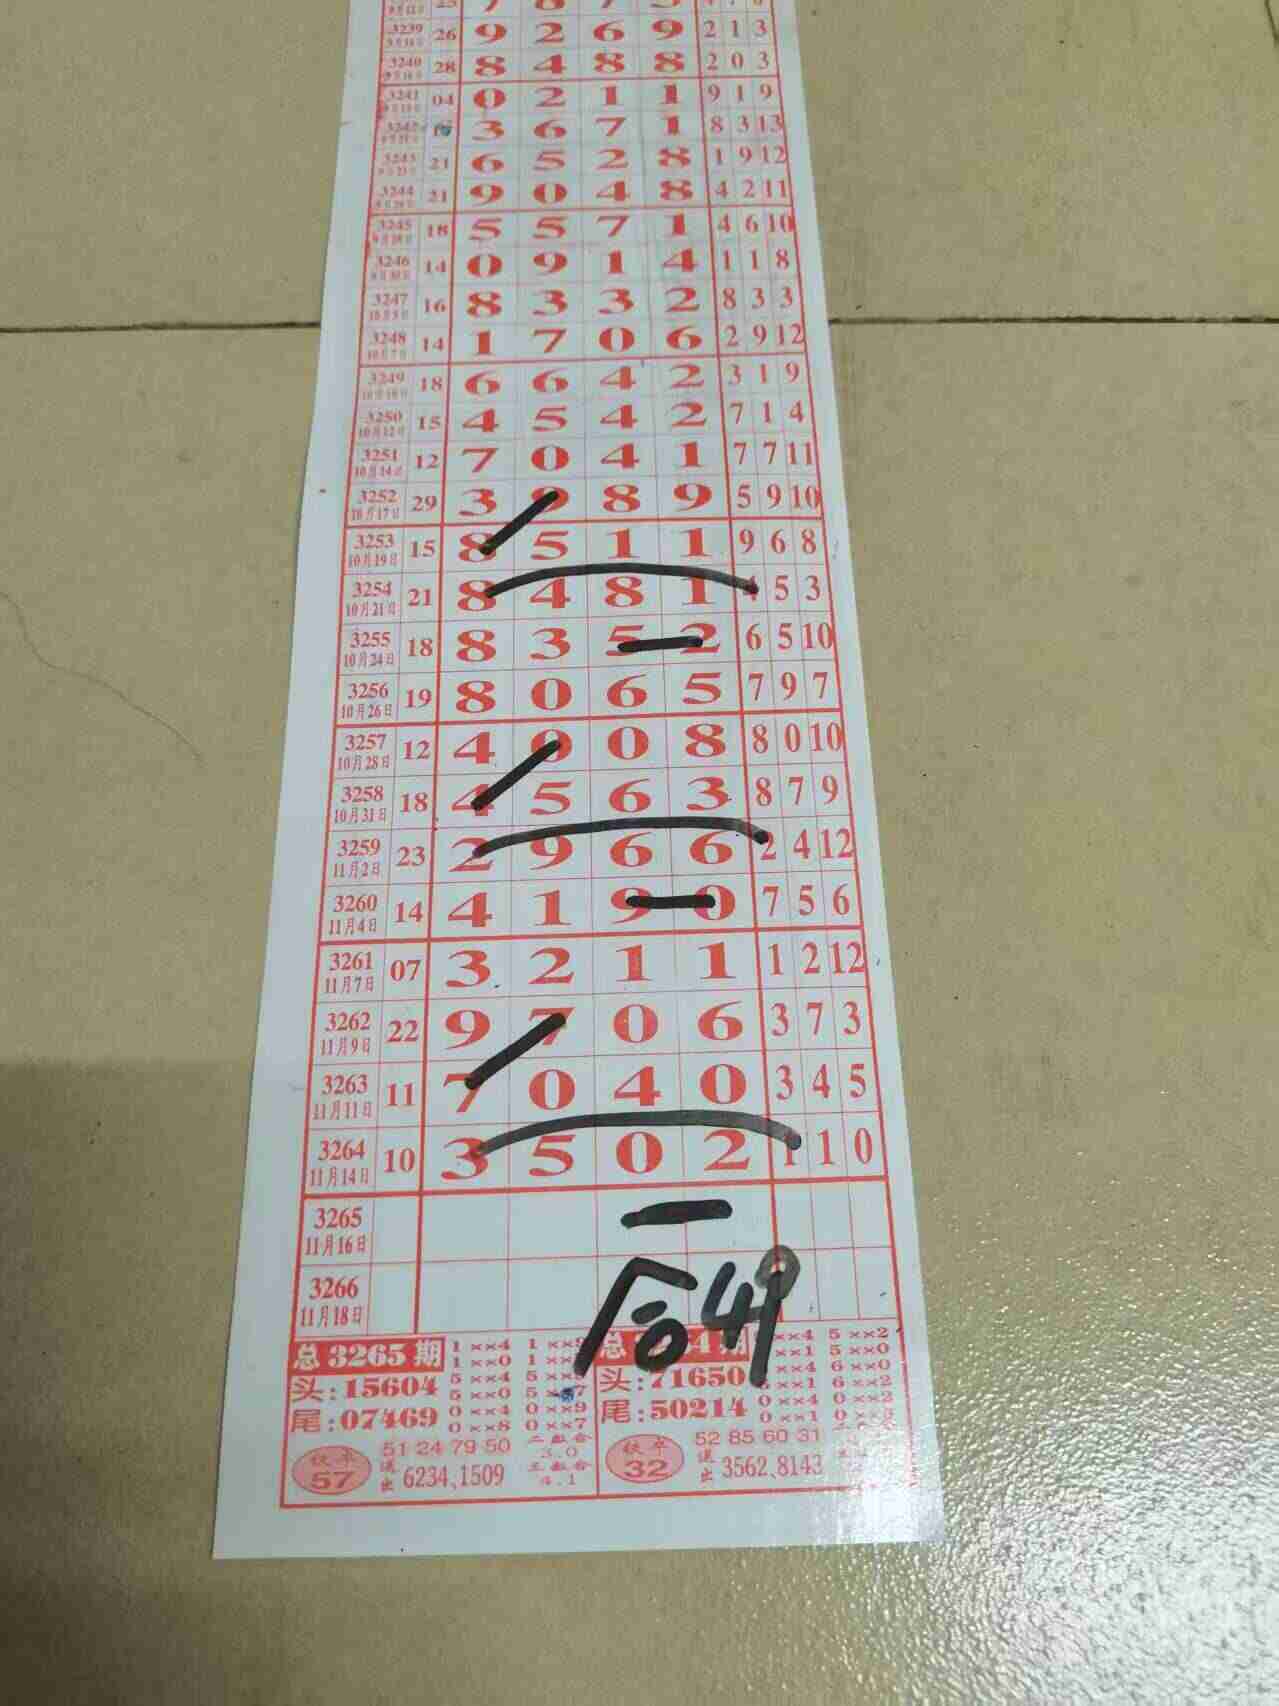 3239 26 9 2 6 9 2 1 3
3240 28 8 4 8 8 2 0 3
3241 04 0 2 1 1 9 1 9
3242 3 6 7 1 8 3 13
3243 21 6 5 2 8 1 9 12
3244 21 9 0 4 8 4 2 11
3245 18 5 5 7 1 4 6 10
3246 14 0 9 1 4 1 1 8
3247 16 8 3 3 2 8 3 3
10月5日
3248 14 1 7 0 6 2 9 12
10月7日
3249 18 6 6 4 2 3 1 9
3250 15 4 5 4 2 7 1 4
10月12日
3251 12 7 0 4 1 7 7 11
10月14日
3252 29 3 9 8 9 5 9 10
10月17日
3253 15 8 5 1 1 9 6 8
10月19日
3254 21 8 4 8 1 4 5 3
10月21日
3255 18 8 3 5 2 6 5 10
10月24日
3256 19 8 0 6 5 7 9 7
10月26日
3257 12 4 0 0 8 8 0 10
10月28日
3258 18 4 5 6 3 8 7 9
10月31日
3259 23 2 9 6 6 2 4 12
11月2日
3260 14 4 1 9 0 7 5 6
11月4日
3261 07 3 2 1 1 1 2 12
11月7日
3262 22 9 7 0 6 3 7 3
11月9日
3263 11 7 0 4 0 3 4 5
11月11日
3264 10 3 5 0 2 1 1 0
11月14日
3265
11月16日
3266
11月18日
合49
总3265期
头:15604
尾:07469
1××4
1××0
5××4
5××0
0××4 0××9
0××8 0××7
铁卒
57
51 24 79 50
送出 6234、1509
二数合
3.0
三数合
4.1
头:71650
尾:50214
5××2
5××0
6××0
6××2
0××4 0××2
0××1
铁卒
32
52 85 60 31
送出 3562、8143